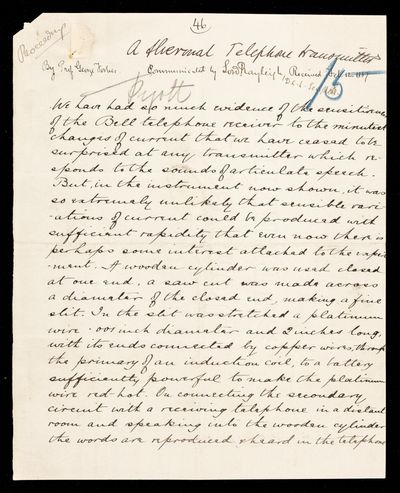 46
Proceedings
A Thermal Telephone Transmitter
By Prof. George Forbes Communicated by Lord Rayleigh Received
We have had so much evidence of the sensitiveness
of the Bell telephone receiver to the minutest
changes of current that we have ceased to be
surprised at any transmitter which re-
sponds to the sounds of articulate speech.
But, in the instrument now shown, it was
so extremely unlikely that sensible vari-
-ations of current could be produced with
sufficient rapidity that even now there is
perhaps some interest attached to the experi-
-ment. A wooden cylinder was used closed
at one end, a saw cut was made across
a diameter of the closed end, making a fine
slit. In the slit was stretched a platinum
wire .001 inch diameter and 2 inches long,
with its ends connected by copper wires, through
the primary of an induction coil, to a battery
sufficiently powerful to make the platinum
wire red hot. On connecting the secondary
circuit with a receiving telephone in a distant
room and speaking into the wooden cylinder
the words are reproduced & heard in the telephone